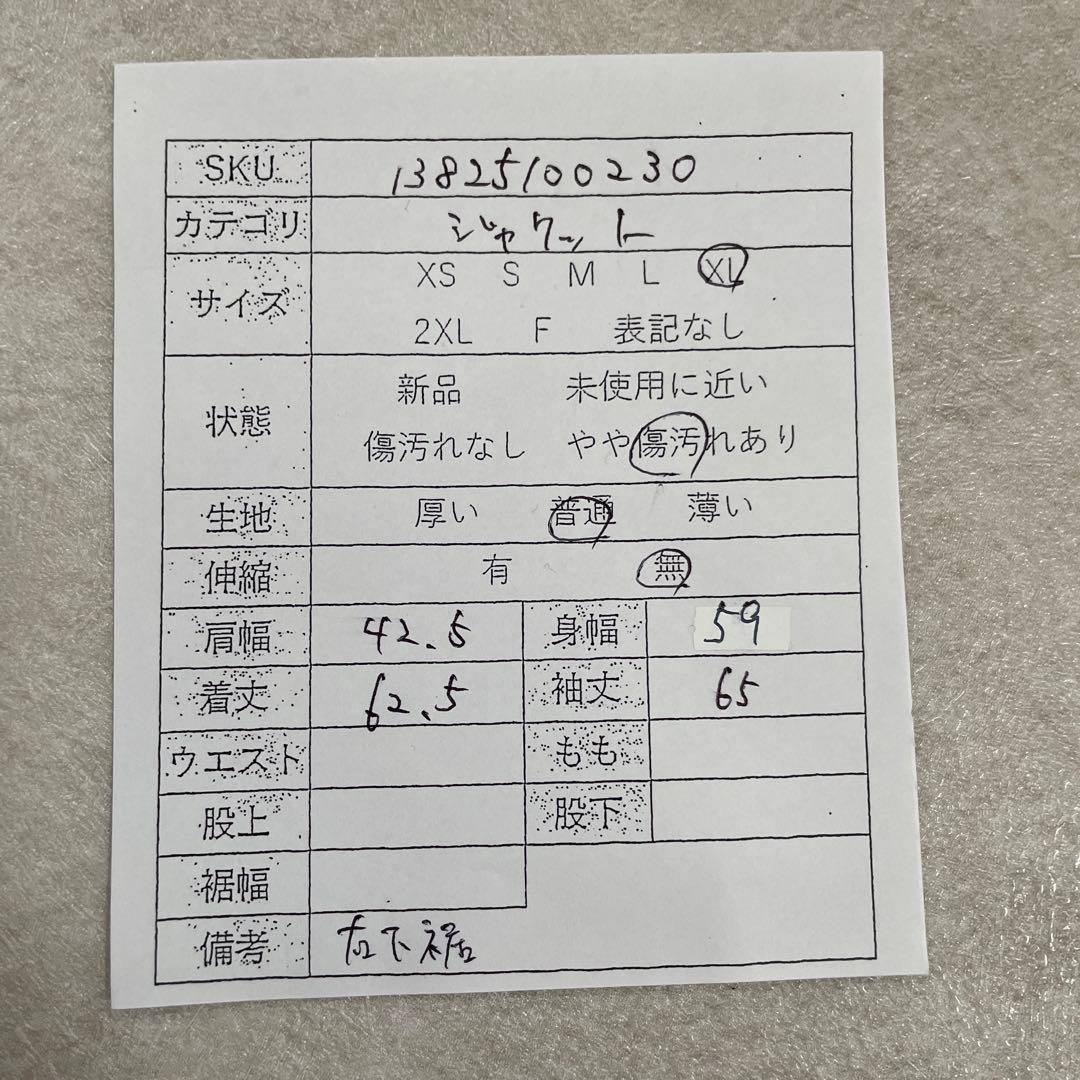 SKU 13825100230
カテゴリ ジャケット
サイズ XS S M L XL
2XL F 表記なし
状態 新品 未使用に近い
傷汚れなし やや傷汚れあり
生地 厚い 普通 薄い
伸縮 有 無
肩幅 42.5 身幅 59
着丈 62.5 袖丈 65
ウエスト もも
股上 股下
裾幅
備考 右下裾